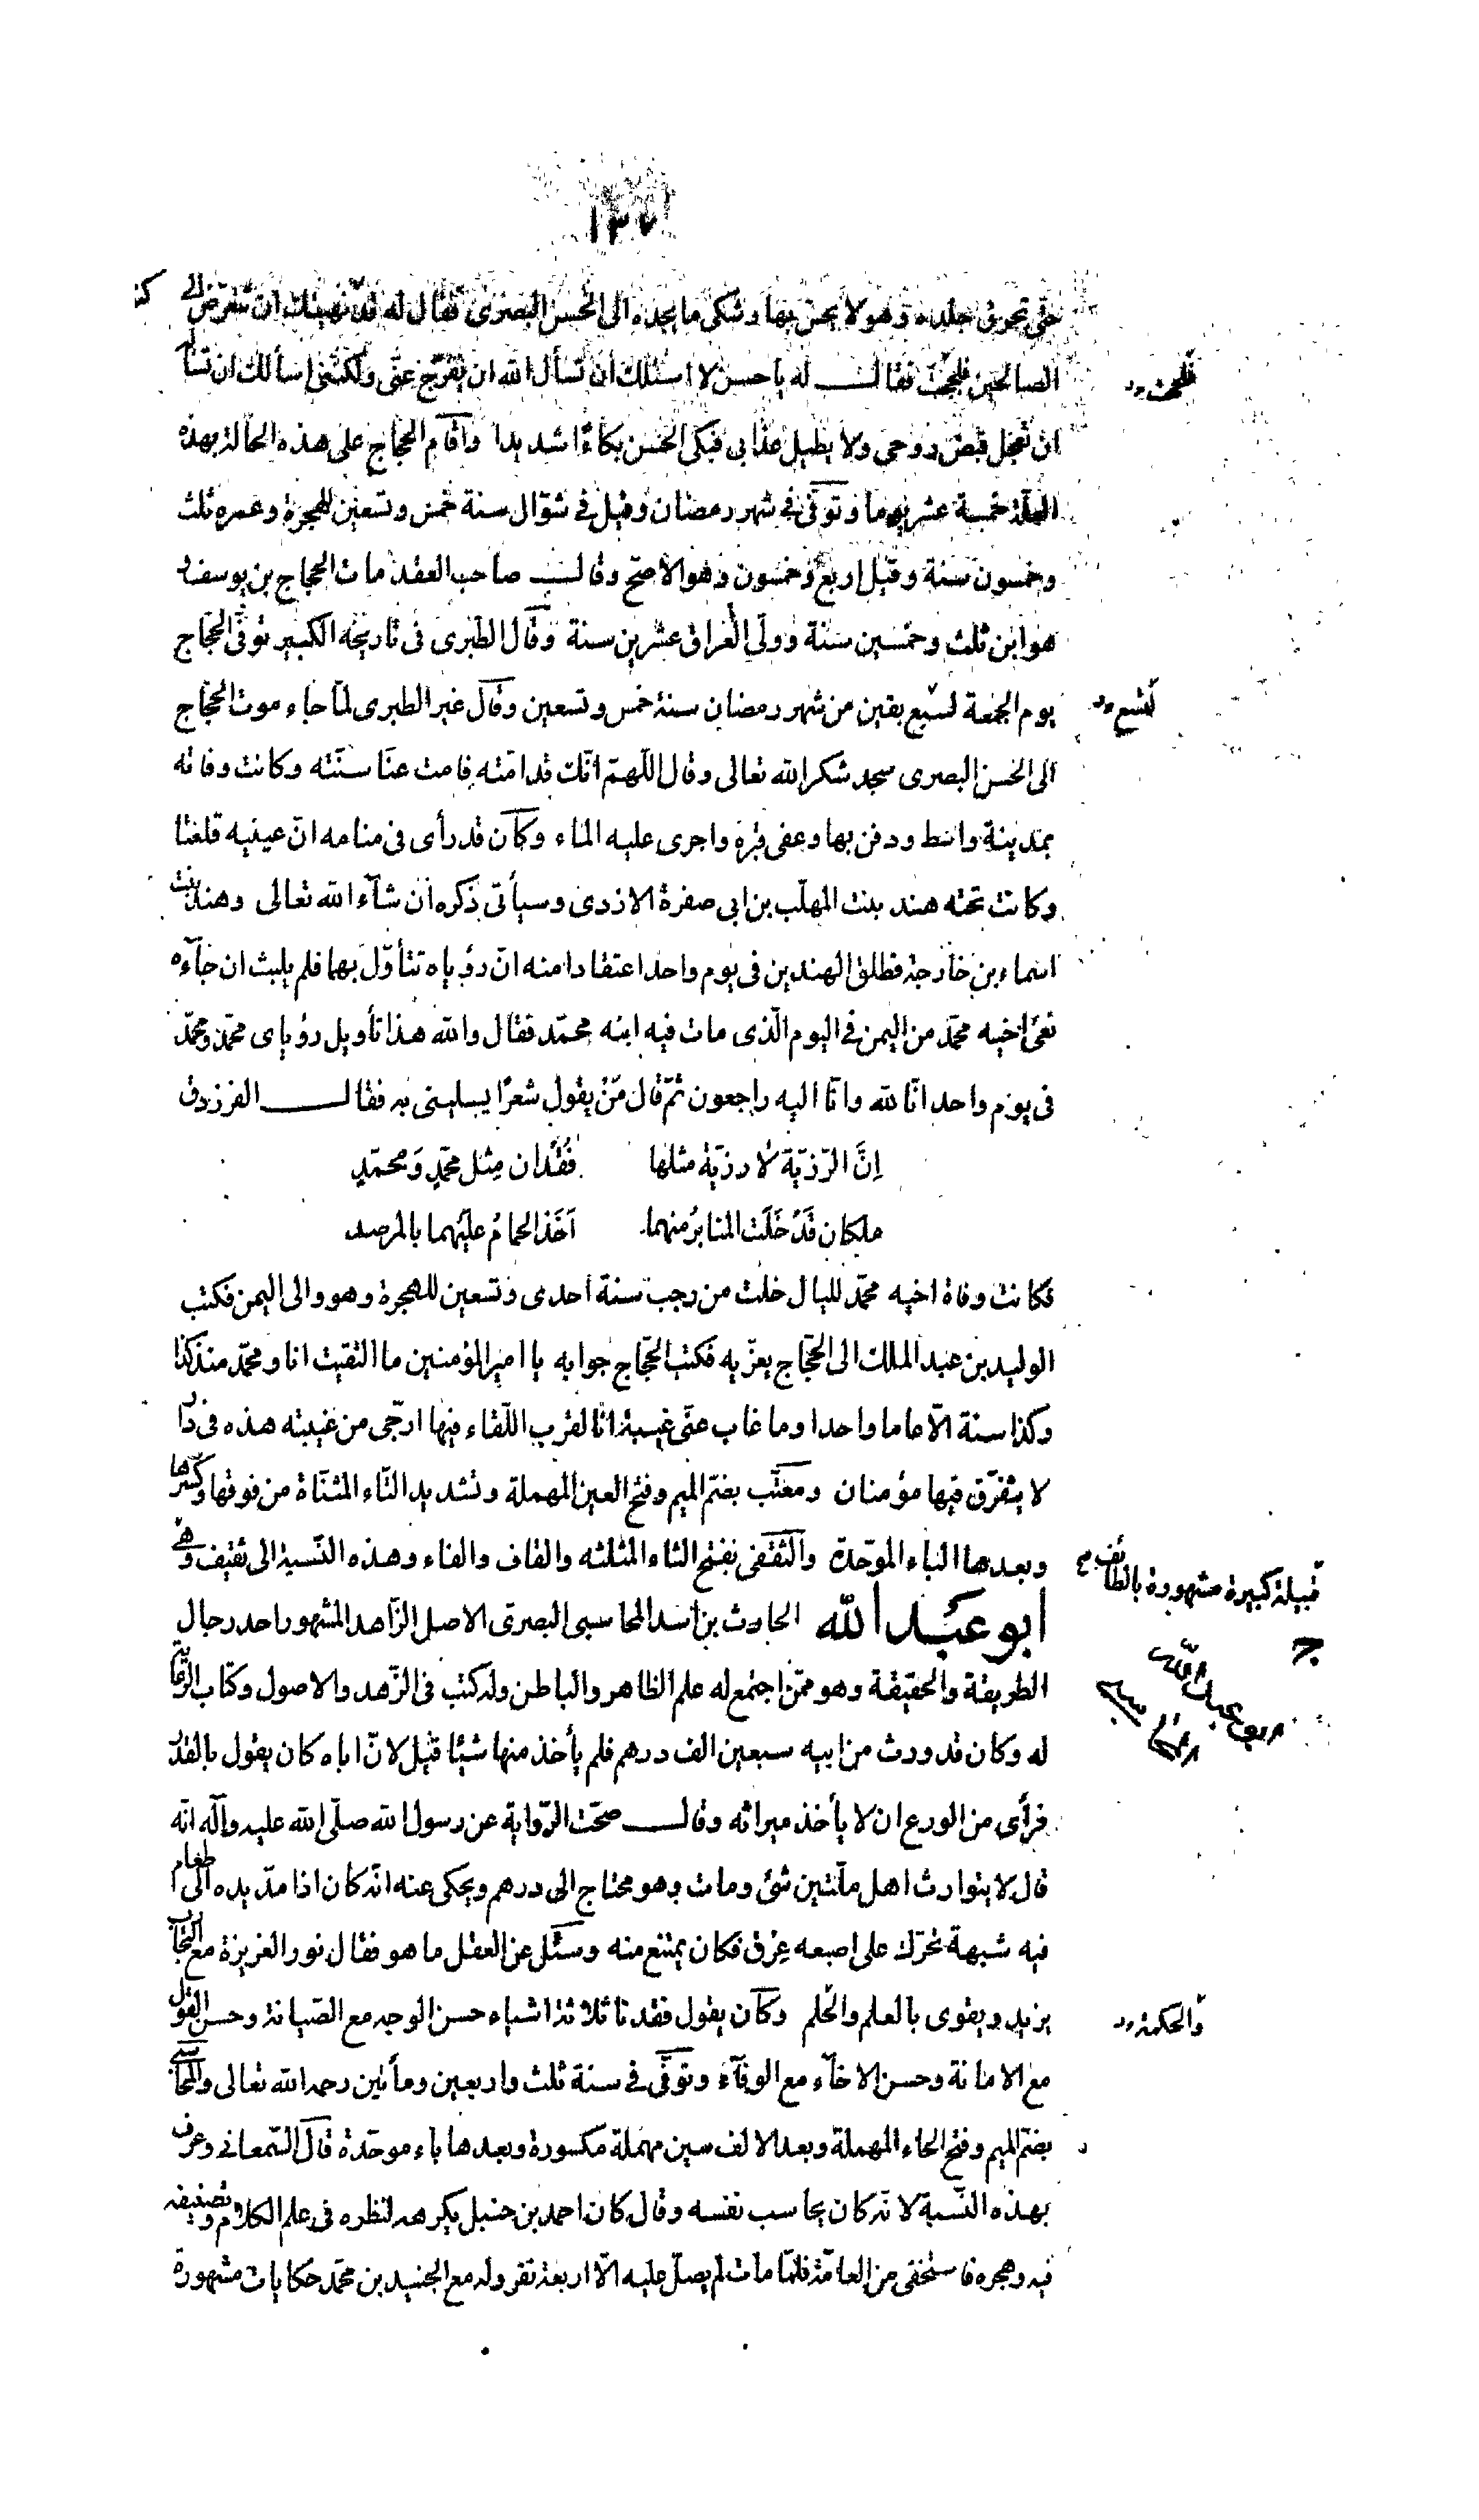 ١٣٧
حتى تحرق جلده وهو لا يحس بها وشكى ما يجده الى الحسن البصرى فقال له قد نهيتك ان تتعرّض الى
الصالحين فلججت فقال له يا حسن لا اسئلك ان تسأل الله ان يفرّج عنّى ولكننى اسألك ان تسأله
ان تعجل قبض روحى ولا يطيل عذابى فبكى الحسن بكاءً شديدا واقام الحجاج على هذه الحالة بهذه
العلة خمسة عشر يوما وتوفى فى شهر رمضان وقيل فى شوّال سنة خمس وتسعين للهجرة وعمره ثلث
وخمسون سنة وقيل اربع وخمسون وهو الاصحّ وقال صاحب العقد مات الحجاج بن يوسف
هو ابن ثلث وخمسين سنة وولّى العراق عشرين سنة وقال الطبرى فى تاريخه الكبير توفّى الحجّاج
يوم الجمعة لسبع بقين من شهر رمضان سنة خمس وتسعين وقال غير الطبرى لمّا جاء موت الحجّاج
الى الحسن البصرى سجد شكرا لله تعالى وقال اللّهمّ انّك قد امتّه فامت عنّا سنّته وكانت وفاته
بمدينة واسط ودفن بها وعفى قبره واجرى عليه الماء وكان قد رأى فى منامه انّ عينيه قلعتا
وكانت تحته هند بنت المهلّب بن ابى صفرة الازدى وسيأتى ذكره ان شآء الله تعالى وهند بنت
اسماء بن خارجة فطلق الهندين فى يوم واحد اعتقادا منه انّ رؤياه تتأوّل بهما فلم يلبث ان جآءه
نعى اخيه محمّد من اليمن فى اليوم الّذى مات فيه ابنه محمّد فقال والله هذا تأويل رؤياى محمّد ومحمّد
فى يوم واحد انّا لله وانّا اليه راجعون ثمّ قال مَنْ يقول شعرًا يسلينى به فقال الفرزدق
اِنَّ الرّزيّة لا رزيّة مثلها فُقْدان مِثل محمّدٍ وَمحمّدٍ
ملكان قَدْ خَلَت المنابرُ منهما اَخَذَ الحمامُ عليهما بالمرصد
فكانت وفاة اخيه محمّد لليال خلت من رجب سنة احدى وتسعين للهجرة وهو والى اليمن فكتب
الوليد بن عبد الملك الى الحجّاج يعزّيه فكتب الحجّاج جوابه يا امير المؤمنين ما التقيت انا ومحمّد منذ كذا
وكذا سنة الّا عاما واحدا وما غاب عنّى غيبة انا لقرب اللّقاء فيها ارجّى من غيبته هذه فى دار
لا يتفرّق فيها مؤمنان ومعتّب بضمّ الميم وفتح العين المهملة وتشديد التّاء المثنّاة من فوقها وكسرها
وبعدها الباء الموحّدة والثقفى بفتح الثاء المثلثه والقاف والفاء وهذه النّسبة الى ثقيف وهى
ابو عبد الله الحارث بن اسد المحاسبى البصرى الاصل الزّاهد المشهور احد رجال
الطريقة والحقيقة وهو ممّن اجتمع له علم الظاهر والباطن وله كتب فى الزّهد والاصول وكتاب الرّعاية
له وكان قد ورث من ابيه سبعين الف درهم فلم يأخذ منها شيئا قيل لانّ اباه كان يقول بالقدر
فرأى من الورع ان لا يأخذ ميراثه وقال صحّت الرّواية عن رسول الله صلّى الله عليه وآله انّه
قال لا يتوارث اهل ملّتين شئ ومات وهو محتاج الى درهم ويحكى عنه انّه كان اذا مدّ يده الى طعام
فيه شبهة تحرّك على اصبعه عِرْق فكان يمتنع منه وسئل عن العقل ما هو فقال نور الغريزة مع التجارب
يزيد ويقوى بالعلم والحلم وكان يقول فقدنا ثلاثة اشياء حسن الوجه مع الصّيانة وحسن القول
مع الامانة وحسن الاخآء مع الوفآء وتوفّى فى سنة ثلث واربعين ومأتين رحمه الله تعالى والمحاسبى
بضمّ الميم وفتح الحاء المهملة وبعد الالف سين مهملة مكسورة وبعدها باء موحّدة قال السّمعانى وعرف
بهذه النّسبة لانّه كان يحاسب نفسه وقال كان احمد بن حنبل يكرهه لنظره فى علم الكلام وتصنيفه
فيه وهجره فاستخفى من العامّة فلمّا مات لم يصلّ عليه الّا اربعة نفر وله مع الجنيد بن محمّد حكايات مشهورة
فلججت
لتسع
قبيلة كبيرة مشهورة بالطائف
ابو عبد الله
المحاسبى
والحكمة